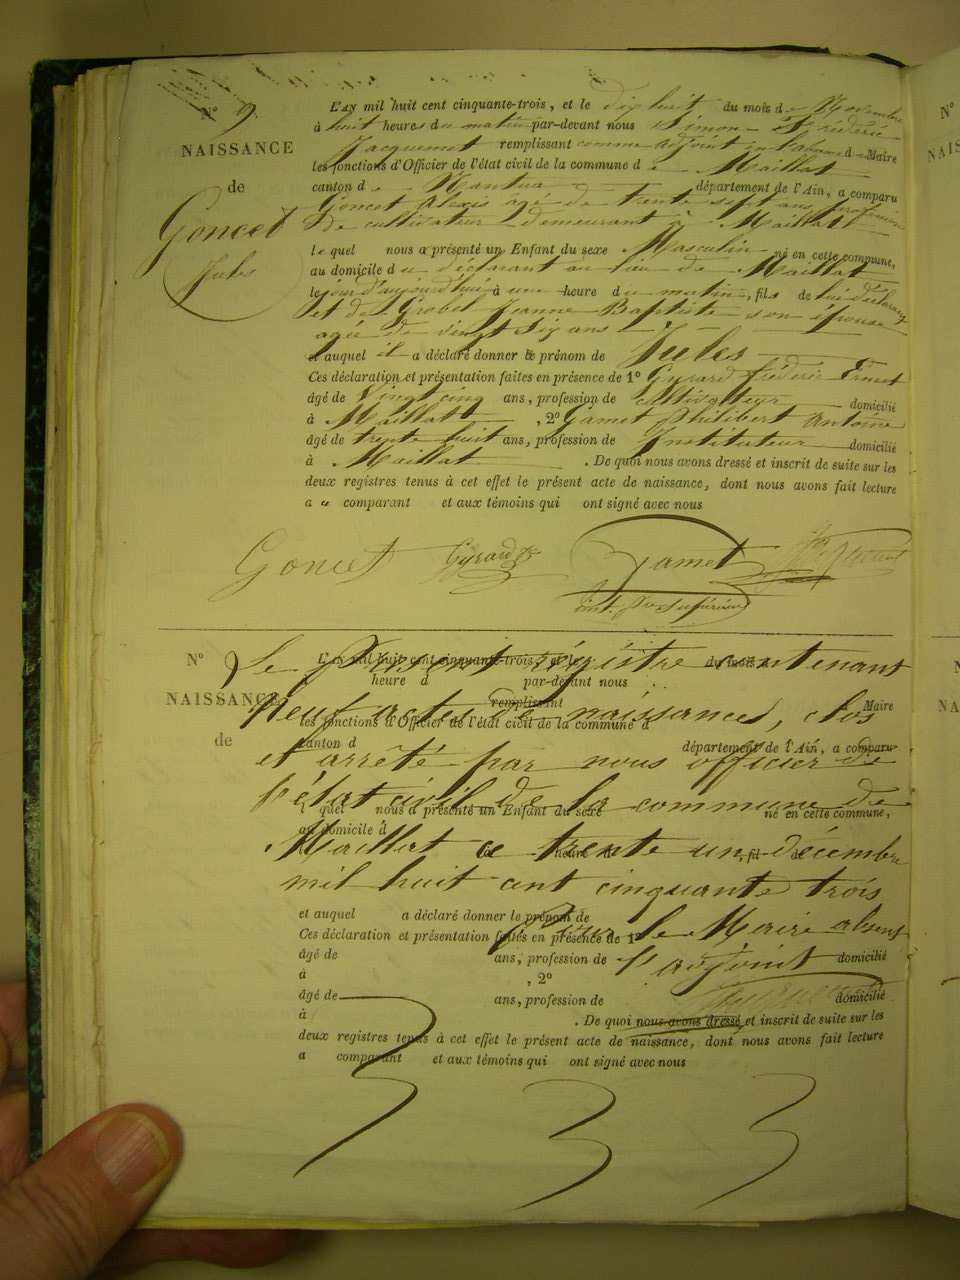 N° 9.
NAISSANCE
de
Goncet
Jules
L'AN mil huit cent cinquante-trois, et le dix huit du mois de Novembre
à huit heures du matin par-devant nous Simon Frédéric
Jacquemet remplissant comme adjoint en l'absence d Maire
les fonctions d'Officier de l'état civil de la commune de Maillat
canton de Nantua département de l'Ain, a comparu
Goncet Alexis âgé de trente sept ans, profession
De cultivateur demeurant à Maillat
le quel nous a présenté un Enfant du sexe Masculin né en cette commune,
au domicile du déclarant au lieu de Maillat
le jour d'aujourd'hui à une heure du matin, fils de lui déclarant
et de Grobel Jeanne Baptiste son épouse
agée de vingt six ans
et auquel il a déclaré donner le prénom de Jules
Ces déclaration et présentation faites en présence de 1° Gyrard frédéric Ernest
âgé de Vingt cinq ans, profession de cultivateur domicilié
à Maillat , 2° Gamet Philibert Antoine
âgé de trente huit ans, profession de Instituteur domicilié
à Maillat . De quoi nous avons dressé et inscrit de suite sur les
deux registres tenus à cet effet le présent acte de naissance, dont nous avons fait lecture
a u comparant et aux témoins qui ont signé avec nous
Goncet Gyrard Gamet
inst. Pre Supérieur
N° 9
NAISSANCE
de
L'AN mil huit cent cinquante-trois, et le du mois d
Le Présent régistre contenant
heure d par-devant nous
remplissant d Maire
neuf actes de naissances, clos
les fonctions d'Officier de l'état civil de la commune d
canton d département de l'Ain, a comparu
et arrêté par nous officier de
l'état civil de la commune de
l quel nous a présenté un Enfant du sexe né en cette commune,
au domicile d
Maillat ce trente un décembre
le heure d , fil de
mil huit cent cinquante trois
et auquel a déclaré donner le prénom de
Pour le Maire absent
Ces déclaration et présentation faites en présence de 1°
âgé de ans, profession de domicilié
l'adjoint
à , 2°
âgé de ans, profession de domicilié
à . De quoi nous avons dressé et inscrit de suite sur les
deux registres tenus à cet effet le présent acte de naissance, dont nous avons fait lecture
a comparant et aux témoins qui ont signé avec nous
N°
NAIS
N°
NA